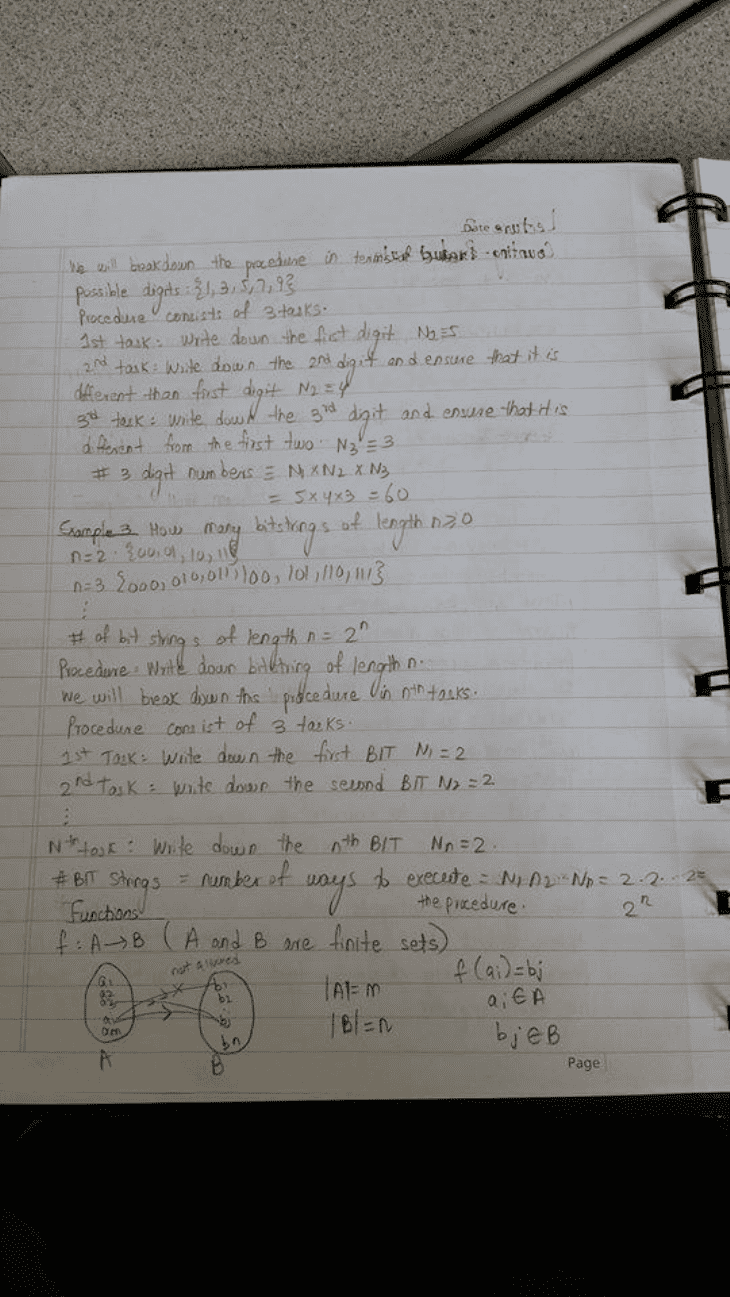 We will breakdown the procedure in
possible digits : {1, 3, 5, 7, 9}
Procedure consists of 3 tasks.
1st task : Write down the first digit N2=5
2nd task : Write down the 2nd digit and ensure that it is
different than first digit N2 = 4
3rd task : Write down the 3rd digit and ensure that it is
different from the first two. N3 = 3
# 3 digit numbers = N1 x N2 x N3
= 5x4x3 = 60
Example 3 How many bitstrings of length n≥0
n=2 . {00,01,10,11}
n=3 {000,010,011,100,101,110,111}
⋮
# of bit strings of length n = 2ⁿ
Procedure : Write down bitstring of length n.
We will break down this procedure in nth tasks.
Procedure consist of 3 tasks.
1st Task : Write down the first BIT N1 = 2
2nd Task : Write down the second BIT N2 = 2
⋮
Nth task : Write down the nth BIT Nn = 2.
# BIT Strings = number of ways to execute = N1 n2 ... Nn = 2.2...2=
the procedure. 2ⁿ
Functions
f : A→B ( A and B are finite sets)
not allowed
f(ai)=bj
a1 b1
a2 b2
a3
|A|= m
ai∈A
ai bj
am
|B|=n
bj∈B
bn
A B
Page